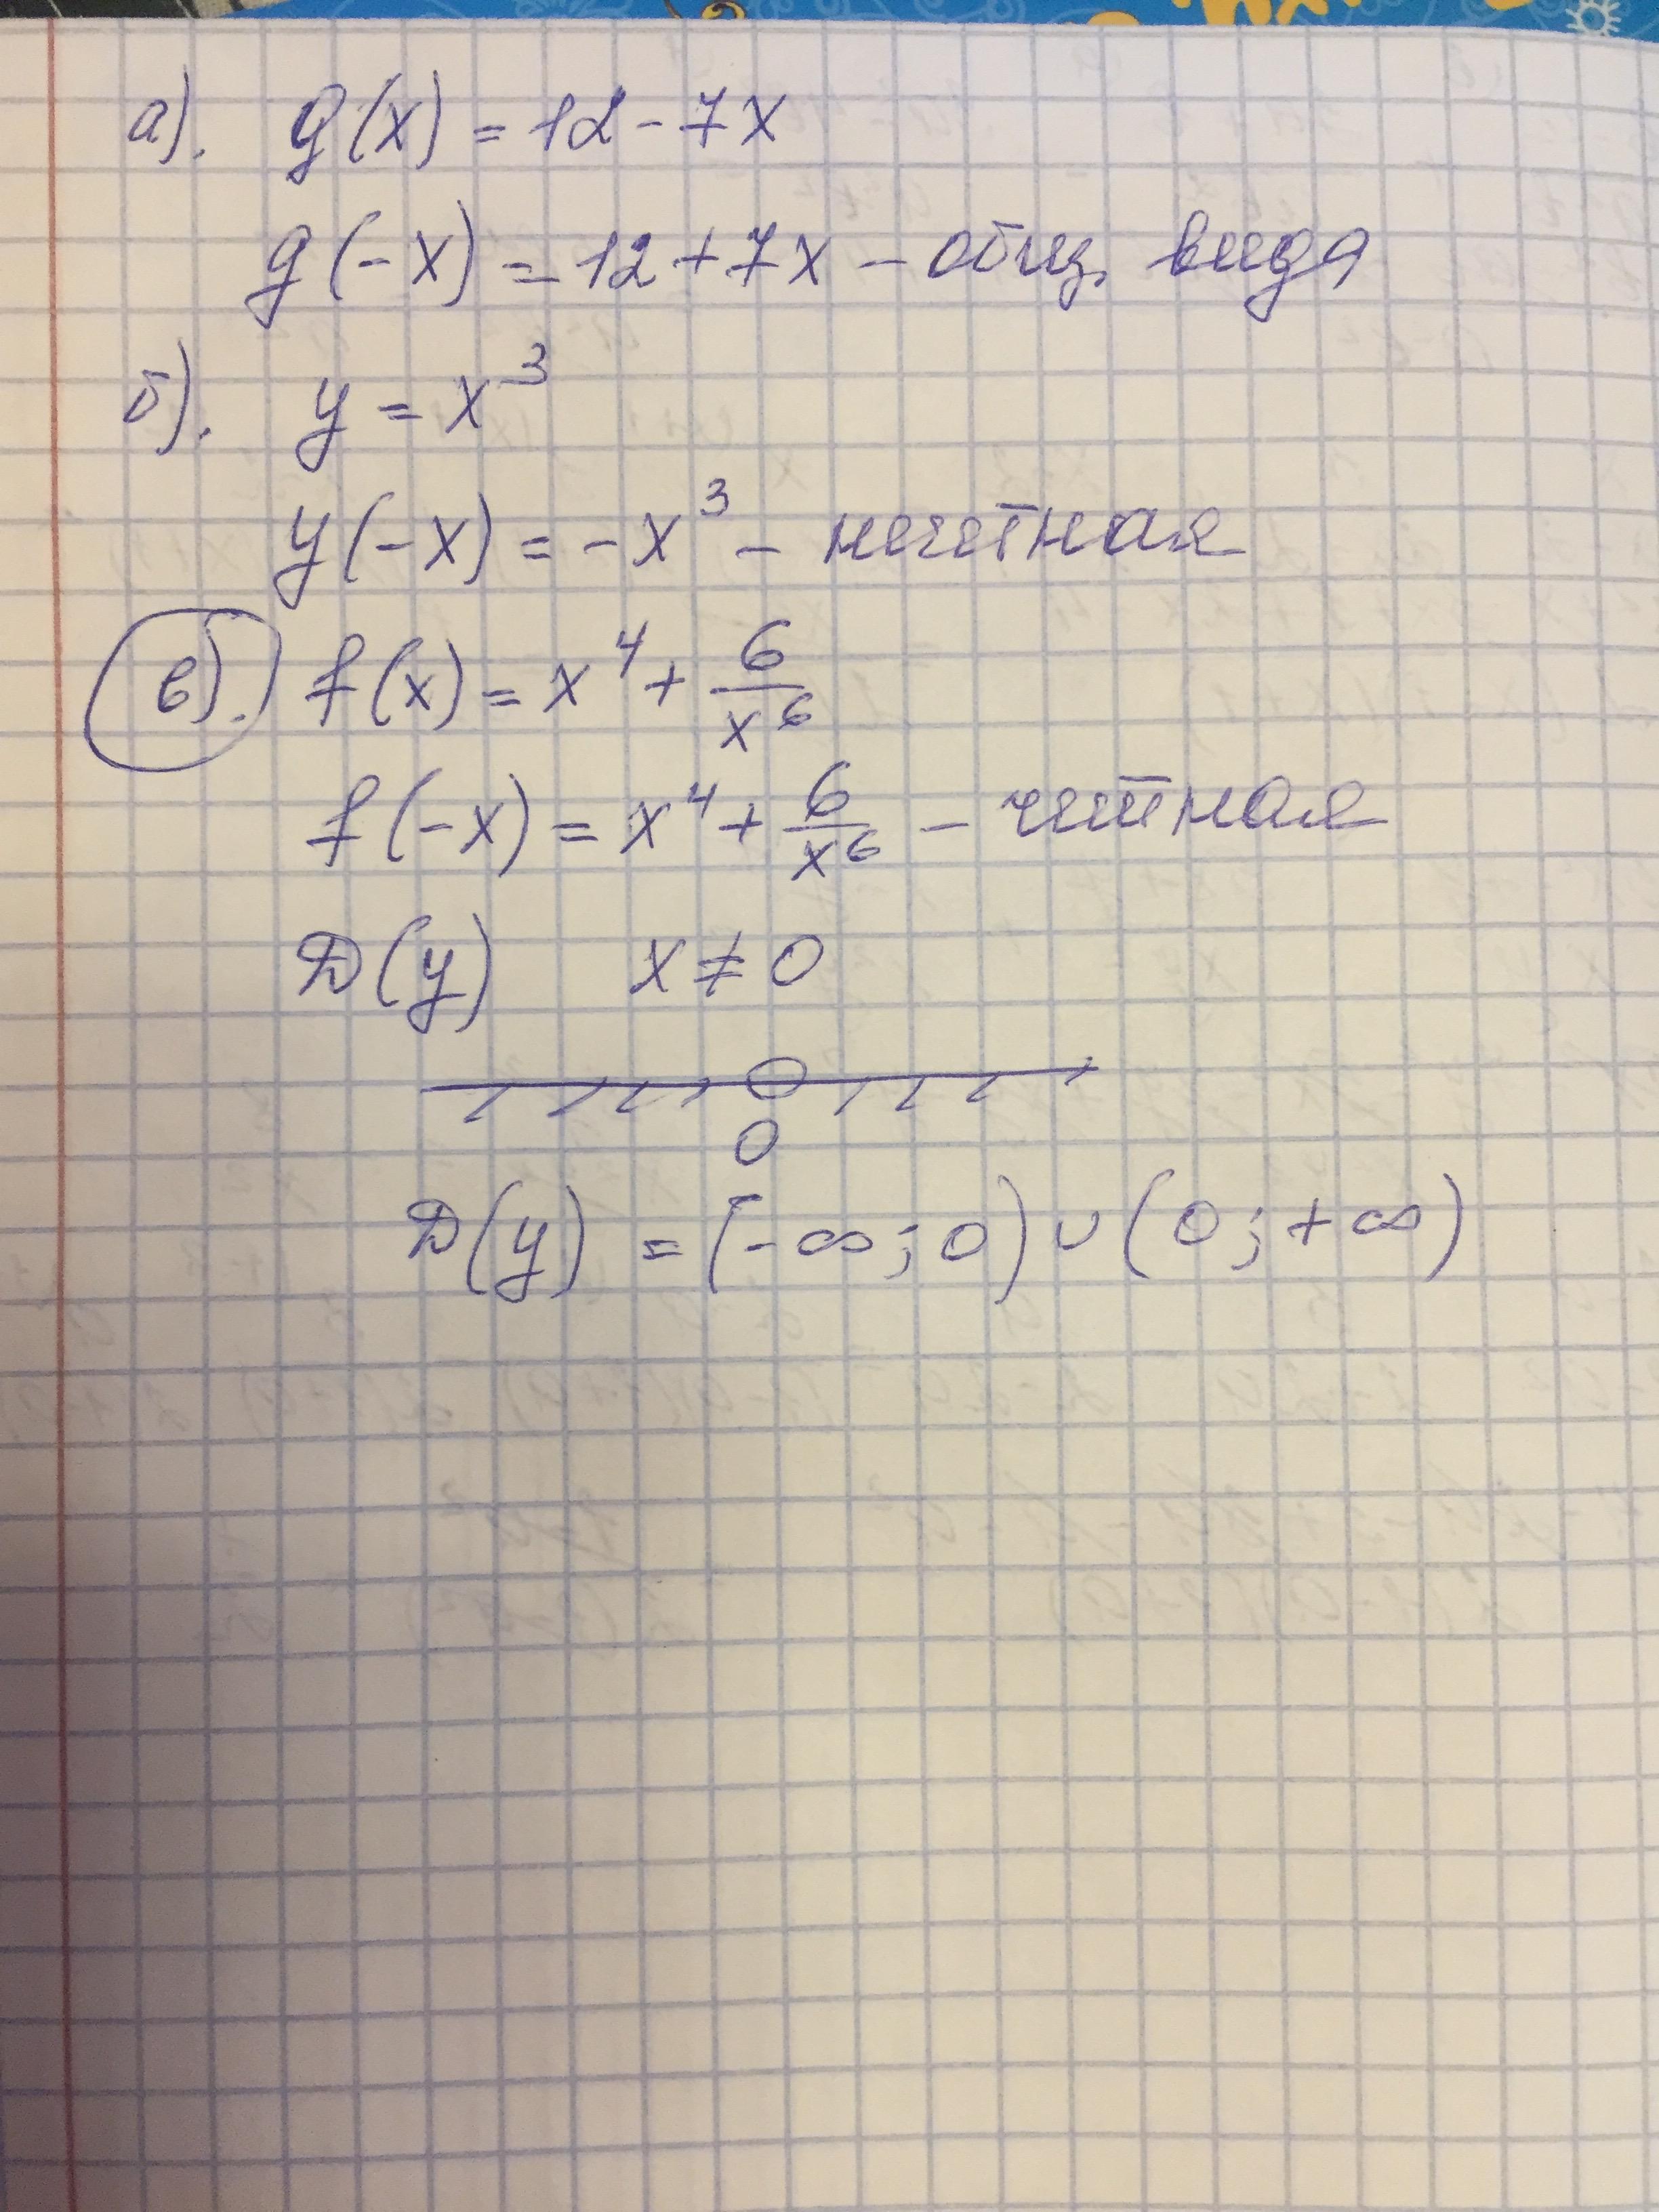 а). g(x) = 12 - 7x
g(-x) = 12 + 7x - общ. вида
б). y = x³
y(-x) = -x³ - нечетная
в). f(x) = x⁴ + 6/x⁶
f(-x) = x⁴ + 6/x⁶ - четная
D(y) x ≠ 0
0
D(y) = (-∞; 0) ∪ (0; +∞)